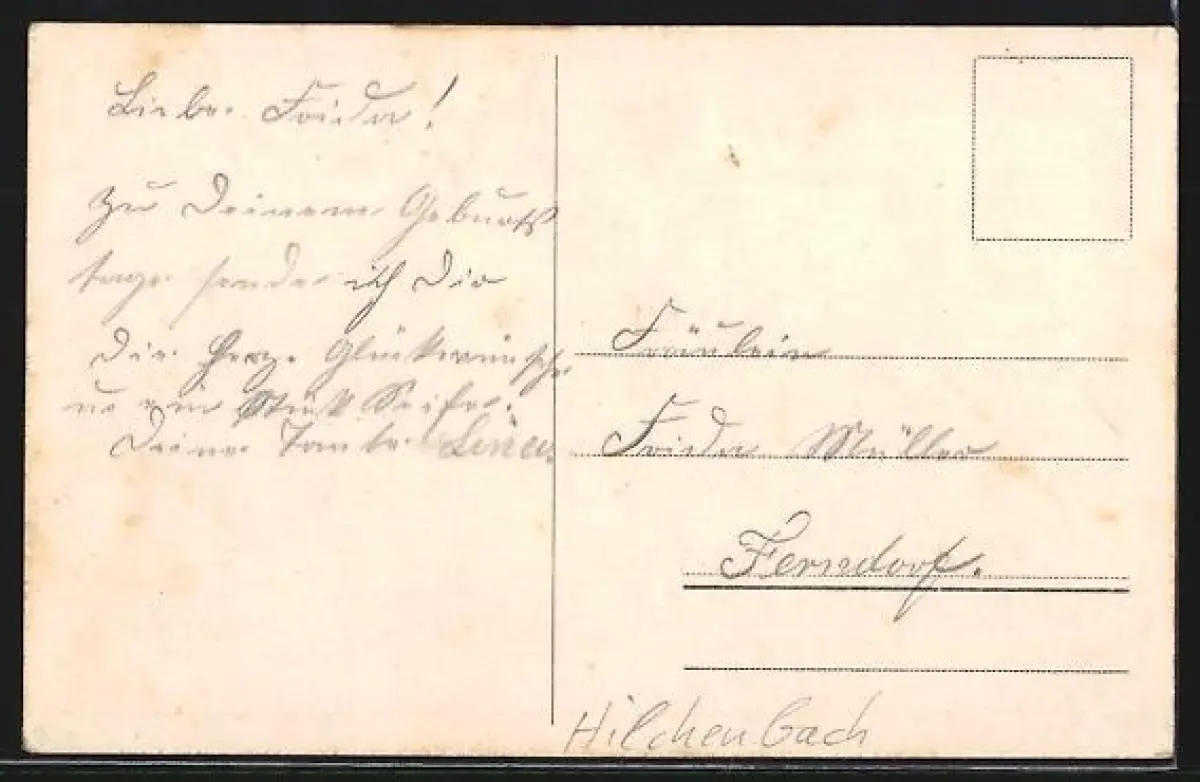 Liebe Frida!
Zu Deinem Geburts
tage sende ich Dir
die herz. Glückwünsche
u. ein Stück Seife.
Deine Tante
Fräulein
Frida Müller
Ferndorf.
Hilchenbach